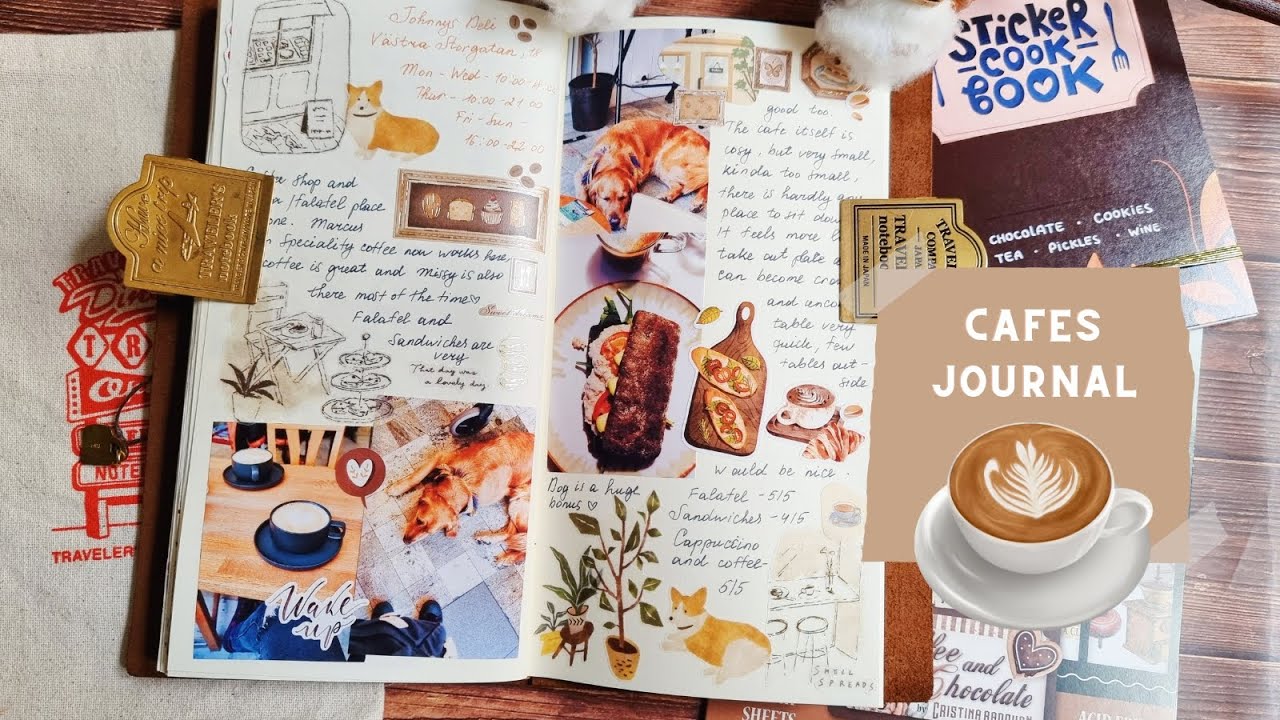 Johnnys Deli
Västra Storgatan, 18
Mon - Wed - 10:00
Thur - 10:00 - 21:00
Fri - Sun -
22:00
shop and
falafel place
Marcus
Speciality coffee now works here,
coffee is great and Missy is also
there most of the time
Falafel and
Sandwiches are
very
That day was
a lovely day
Wake
up
good too.
The cafe itself is
cosy, but very small,
kinda too small,
there is hardly any
place to sit down
It feels more
take out place
can become
and
table very
quick, few
tables out-
side
would be nice.
Dog is a huge
bonus
Falafel - 5/5
Sandwiches - 4/5
Cappuccino
and coffee -
5/5
SMELL
SPREADS
TRAVELER'S
COMPANY
JAPAN
TRAVELER'S
notebook
MADE IN JAPAN
TR
NOTE
TRAVELER
STICKER
COOK
BOOK
CHOCOLATE · COOKIES
TEA · PICKLES · WINE
CAFES
JOURNAL
and
Chocolate
by CRISTINA
SHEETS